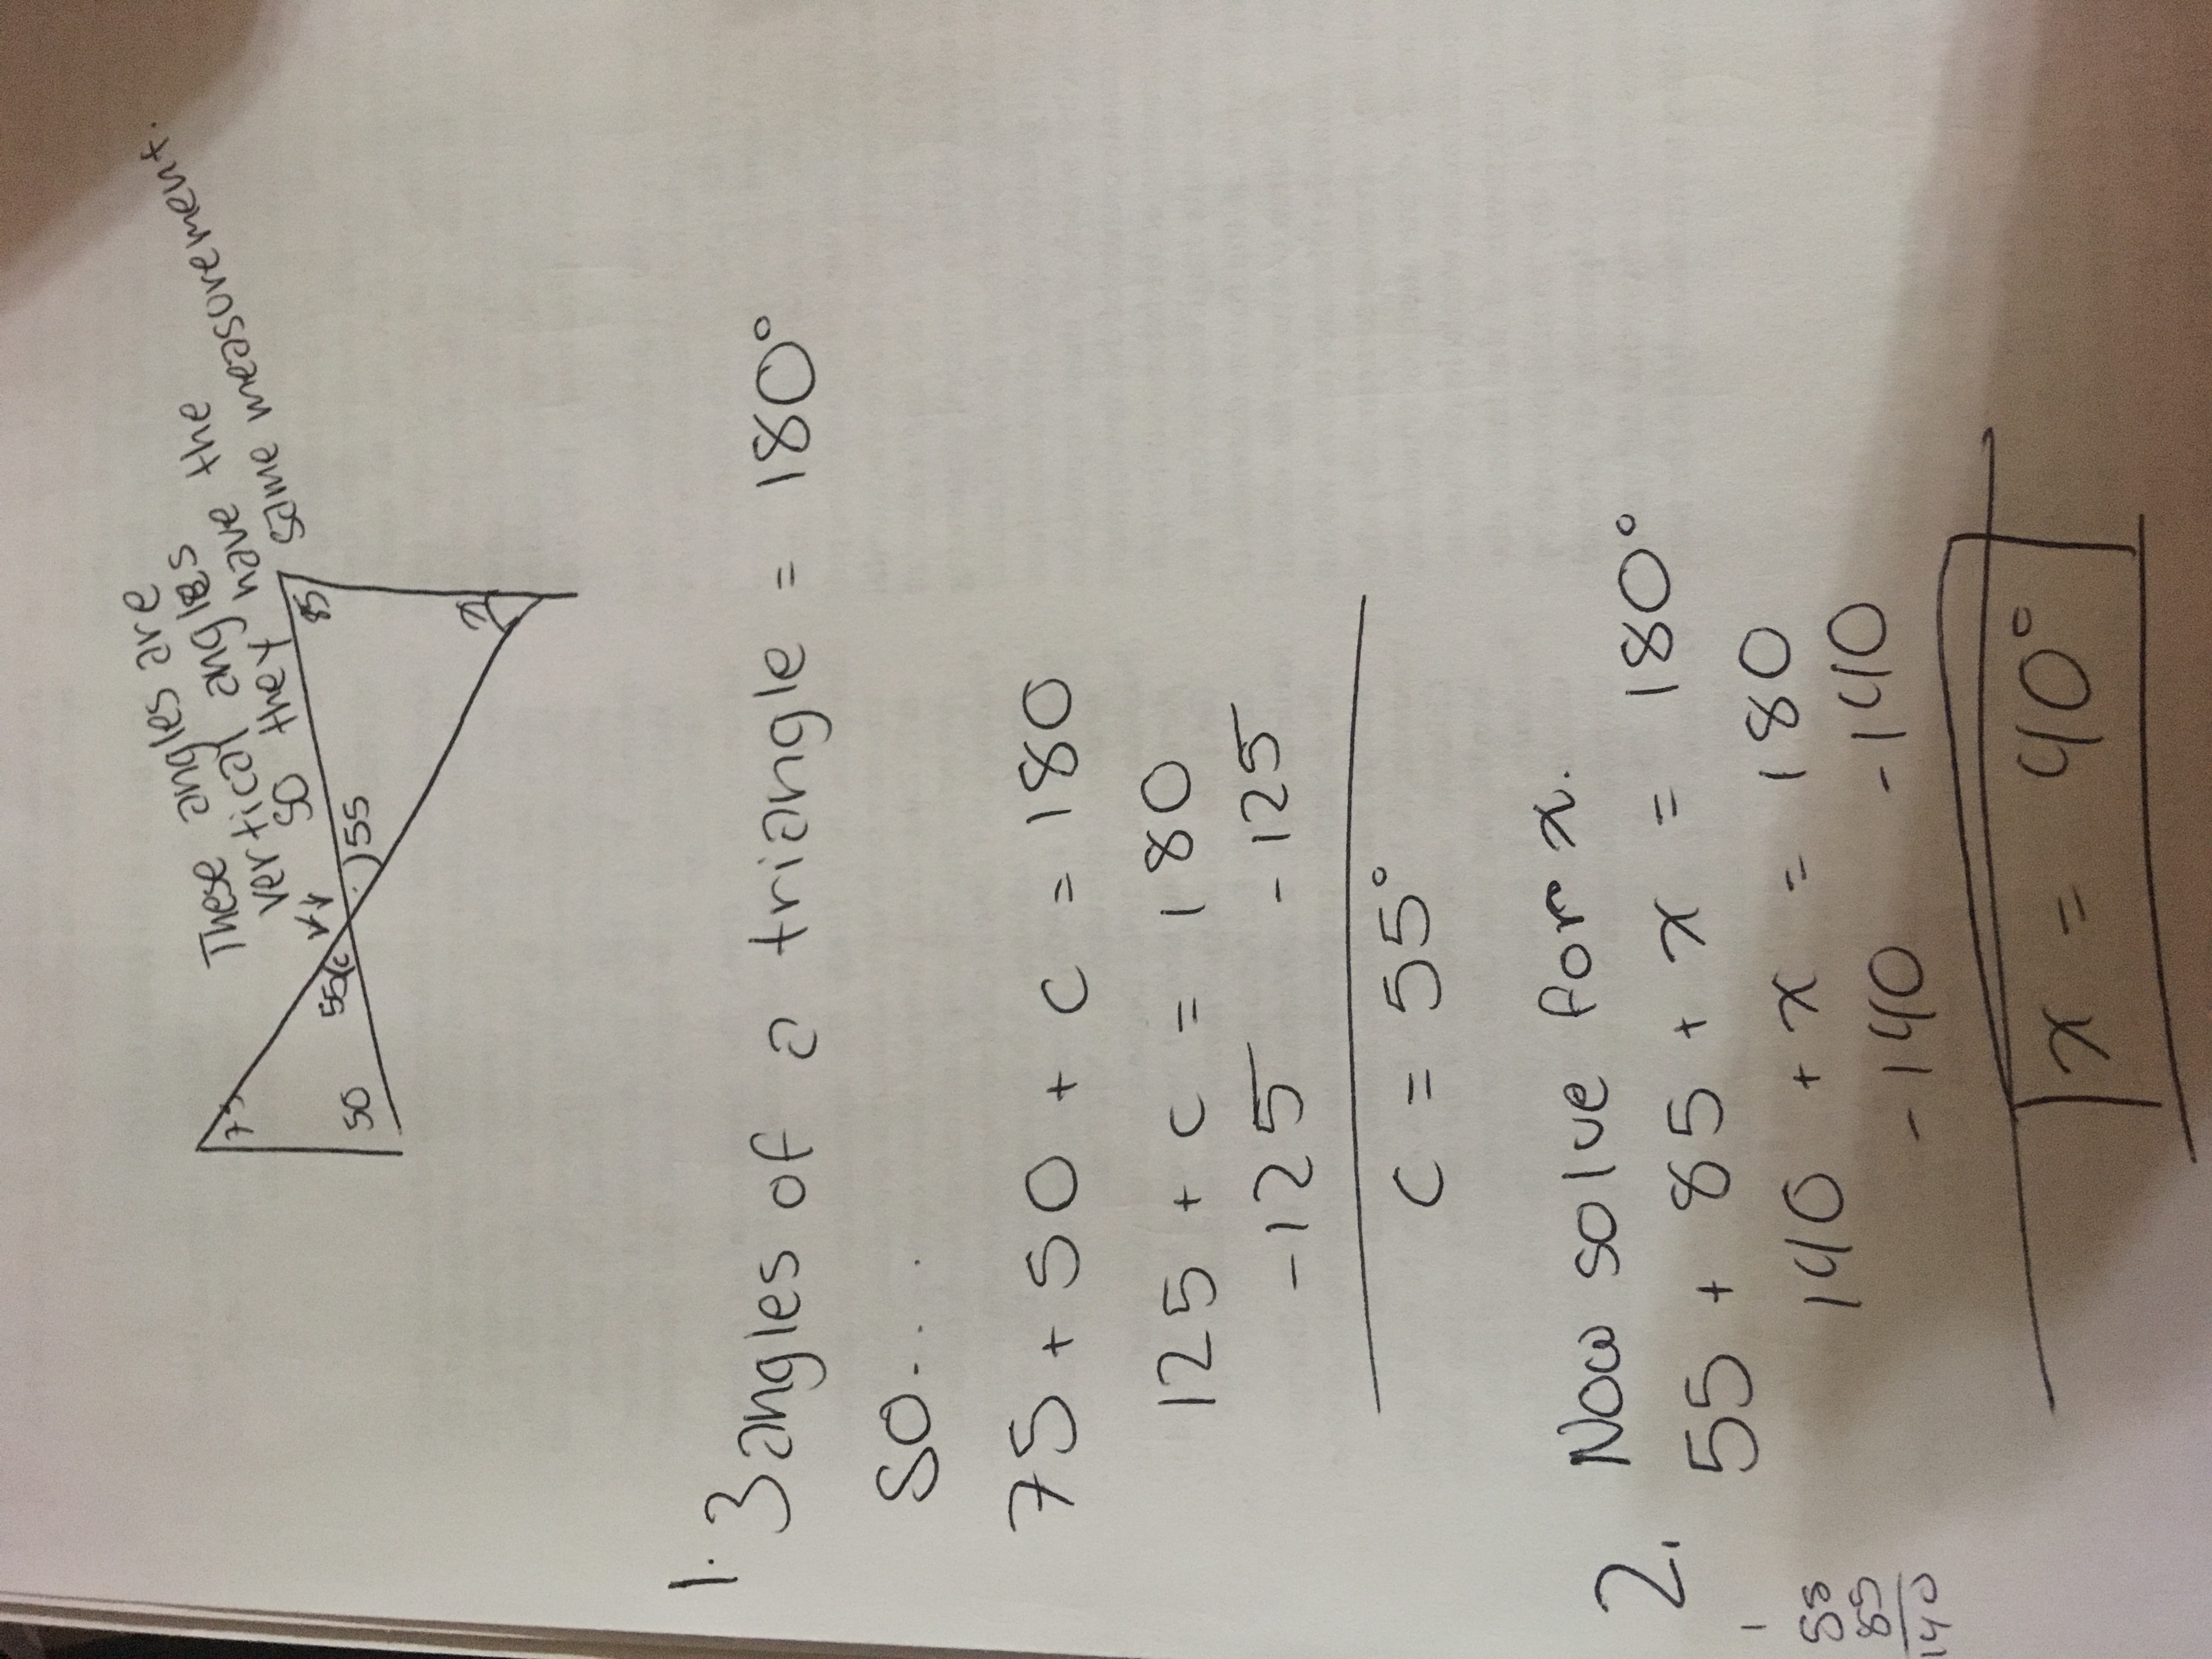 These angles are
vertical angles
so they have the
same measurement.
75
50
55
c
55
85
x
1. 3 angles of a triangle = 180°
so...
75 + 50 + c = 180
125 + c = 180
-125 -125
c = 55°
2. Now solve for x.
55 + 85 + x = 180°
140 + x = 180
-140 -140
x = 40°
1
55
85
140